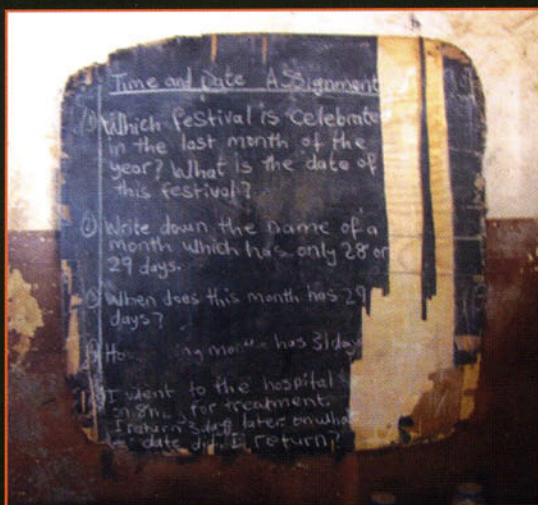 Time and Date Assignment
Which festival is celebrate
in the last month of the
year? What is the date of
this festival?
Write down the name of a
month which has only 28 or
29 days.
When does this month has 29
days?
has 31 day
I went to the hospital
for treatment.
I return 3 days later on what
date did I return?